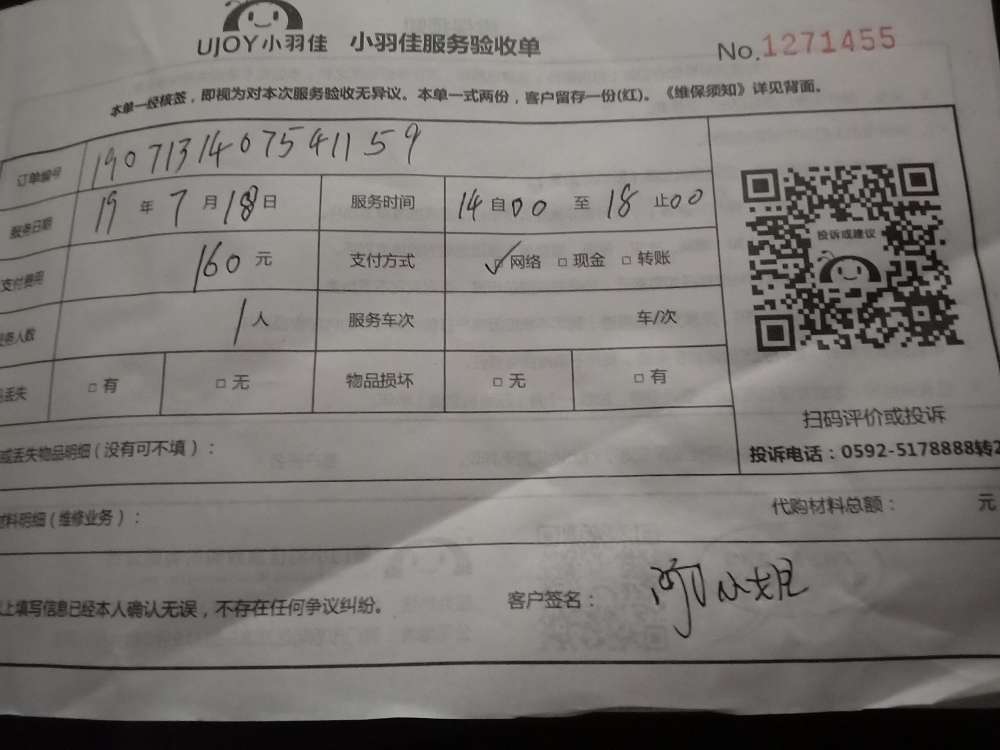 UJOY小羽佳 小羽佳服务验收单 No.1271455
本单一经核签，即视为对本次服务验收无异议。本单一式两份，客户留存一份(红)。《维保须知》详见背面。
订单编号 1907131407541159
服务日期 19 年 7 月 18 日 服务时间 14 自 00 至 18 止 00
投诉或建议
支付费用 160 元 支付方式 ✓□网络 □现金 □转账
人数 1 人 服务车次 车/次
丢失 □有 □无 物品损坏 □无 □有
扫码评价或投诉
或丢失物品明细（没有可不填）：
投诉电话：0592-5178888转2
材料明细（维修业务）： 代购材料总额： 元
以上填写信息已经本人确认无误，不存在任何争议纠纷。 客户签名： 小姐